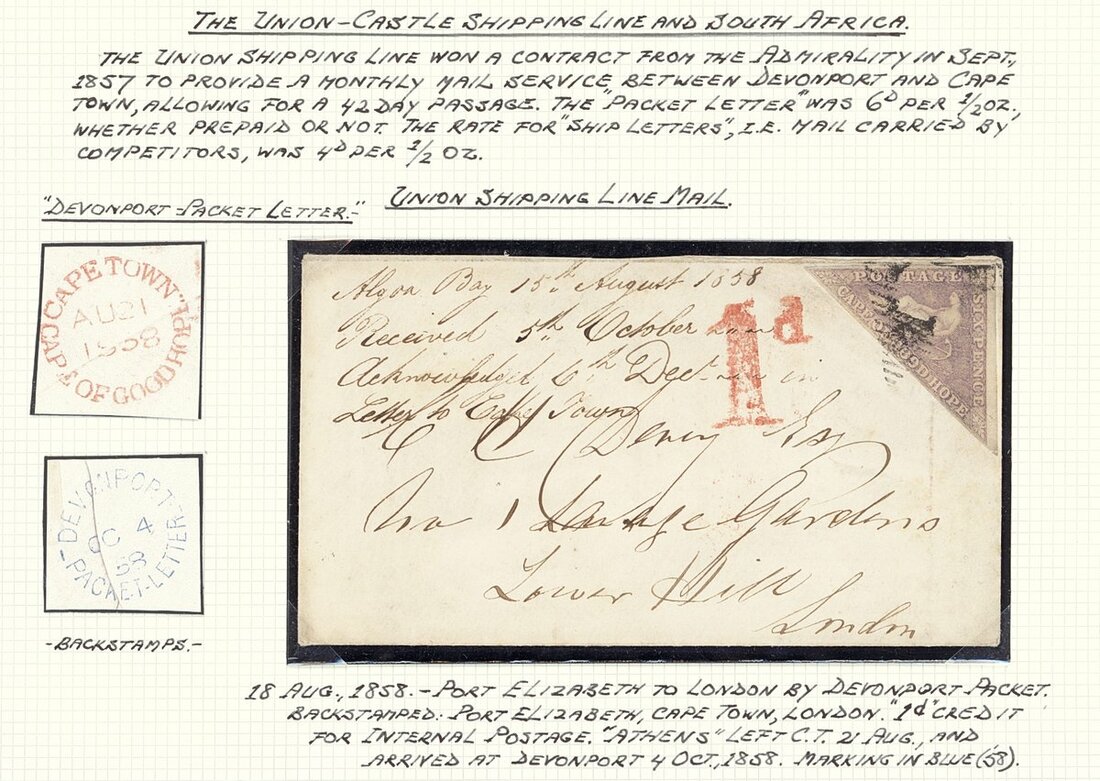 THE UNION-CASTLE SHIPPING LINE AND SOUTH AFRICA.
THE UNION SHIPPING LINE WON A CONTRACT FROM THE ADMIRALITY IN SEPT.,
1857 TO PROVIDE A MONTHLY MAIL SERVICE, BETWEEN DEVONPORT AND CAPE
TOWN, ALLOWING FOR A 42 DAY PASSAGE. THE "PACKET LETTER" WAS 6D PER 1/2 OZ.,
WHETHER PREPAID OR NOT. THE RATE FOR "SHIP LETTERS", I.E. MAIL CARRIED BY
COMPETITORS, WAS 4D PER 1/2 OZ.
"DEVONPORT-PACKET LETTER."
UNION SHIPPING LINE MAIL.
CAPE TOWN
CAPE OF GOOD HOPE
AU 21
1858
DEVONPORT
OC 4
58
PACKET-LETTER
-BACKSTAMPS.-
Algoa Bay 15th August 1858
Received 5th October
Acknowledged 6th in
Letter to Town
1d
POSTAGE
SIX PENCE
CAPE OF GOOD HOPE
Esq
No 1 Gardens
Lower Hill
London
18 AUG., 1858. - PORT ELIZABETH TO LONDON BY DEVONPORT PACKET.
BACKSTAMPED: PORT ELIZABETH, CAPE TOWN, LONDON. "1d" CREDIT
FOR INTERNAL POSTAGE. "ATHENS" LEFT C.T. 21 AUG., AND
ARRIVED AT DEVONPORT 4 OCT., 1858. MARKING IN BLUE (58).